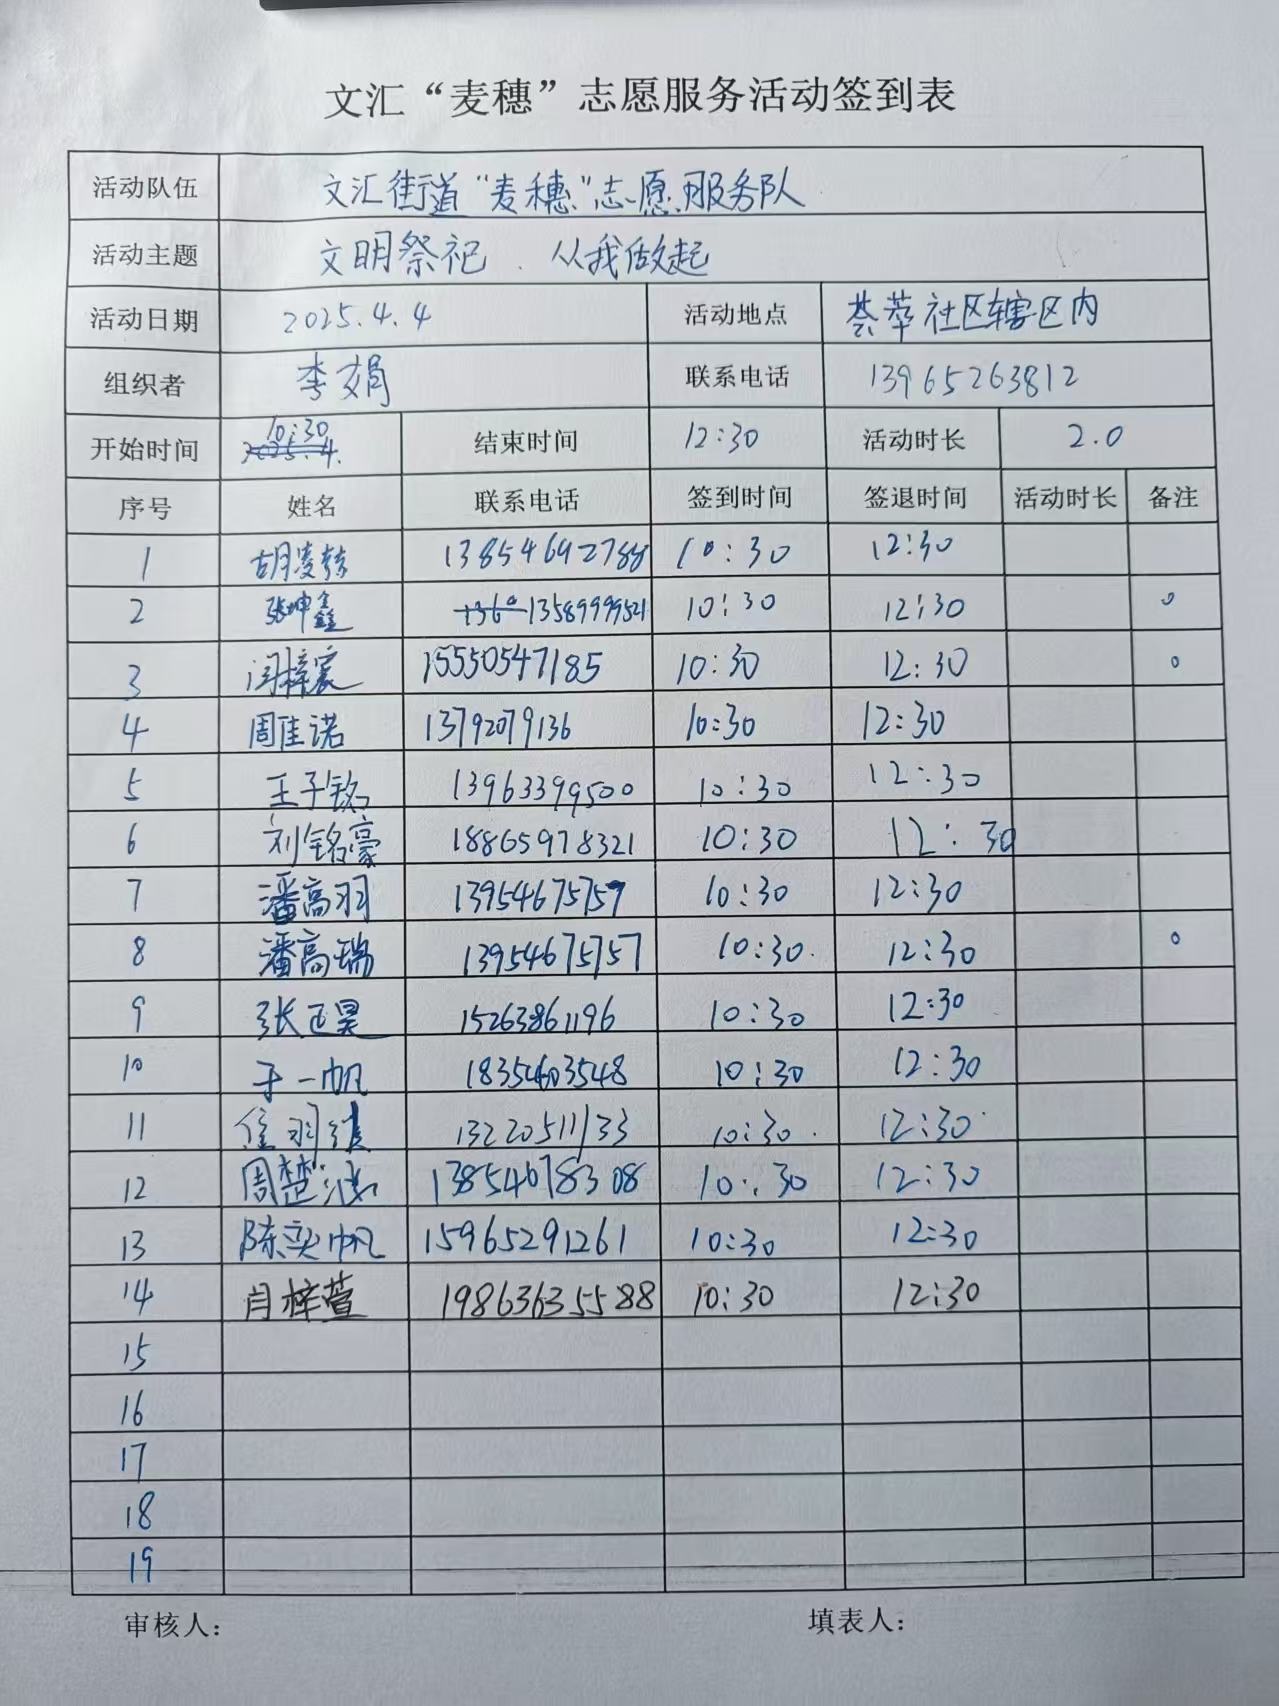 文汇“麦穗”志愿服务活动签到表
活动队伍 文汇街道“麦穗”志愿服务队
活动主题 文明祭祀 从我做起
活动日期 2025.4.4 活动地点 荟萃社区辖区内
组织者 李娟 联系电话 13965263812
开始时间 10:30 结束时间 12:30 活动时长 2.0
序号 姓名 联系电话 签到时间 签退时间 活动时长 备注
1 胡凌赫 13854692788 10:30 12:30
2 张坤鑫 13589999521 10:30 12:30 o
3 闫梓宸 15550547185 10:30 12:30 o
4 周佳诺 13792079136 10:30 12:30
5 王子铭 13963399500 10:30 12:30
6 刘铭豪 18865978321 10:30 12:30
7 潘高羽 13954675757 10:30 12:30
8 潘高瑞 13954675757 10:30 12:30 o
9 张正昊 15263861196 10:30 12:30
10 于一帆 18354603548 10:30 12:30
11 13220511133 10:30 12:30
12 周楚 13854678308 10:30 12:30
13 陈奕帆 15965291261 10:30 12:30
14 肖梓萱 19863635588 10:30 12:30
15
16
17
18
19
审核人： 填表人：